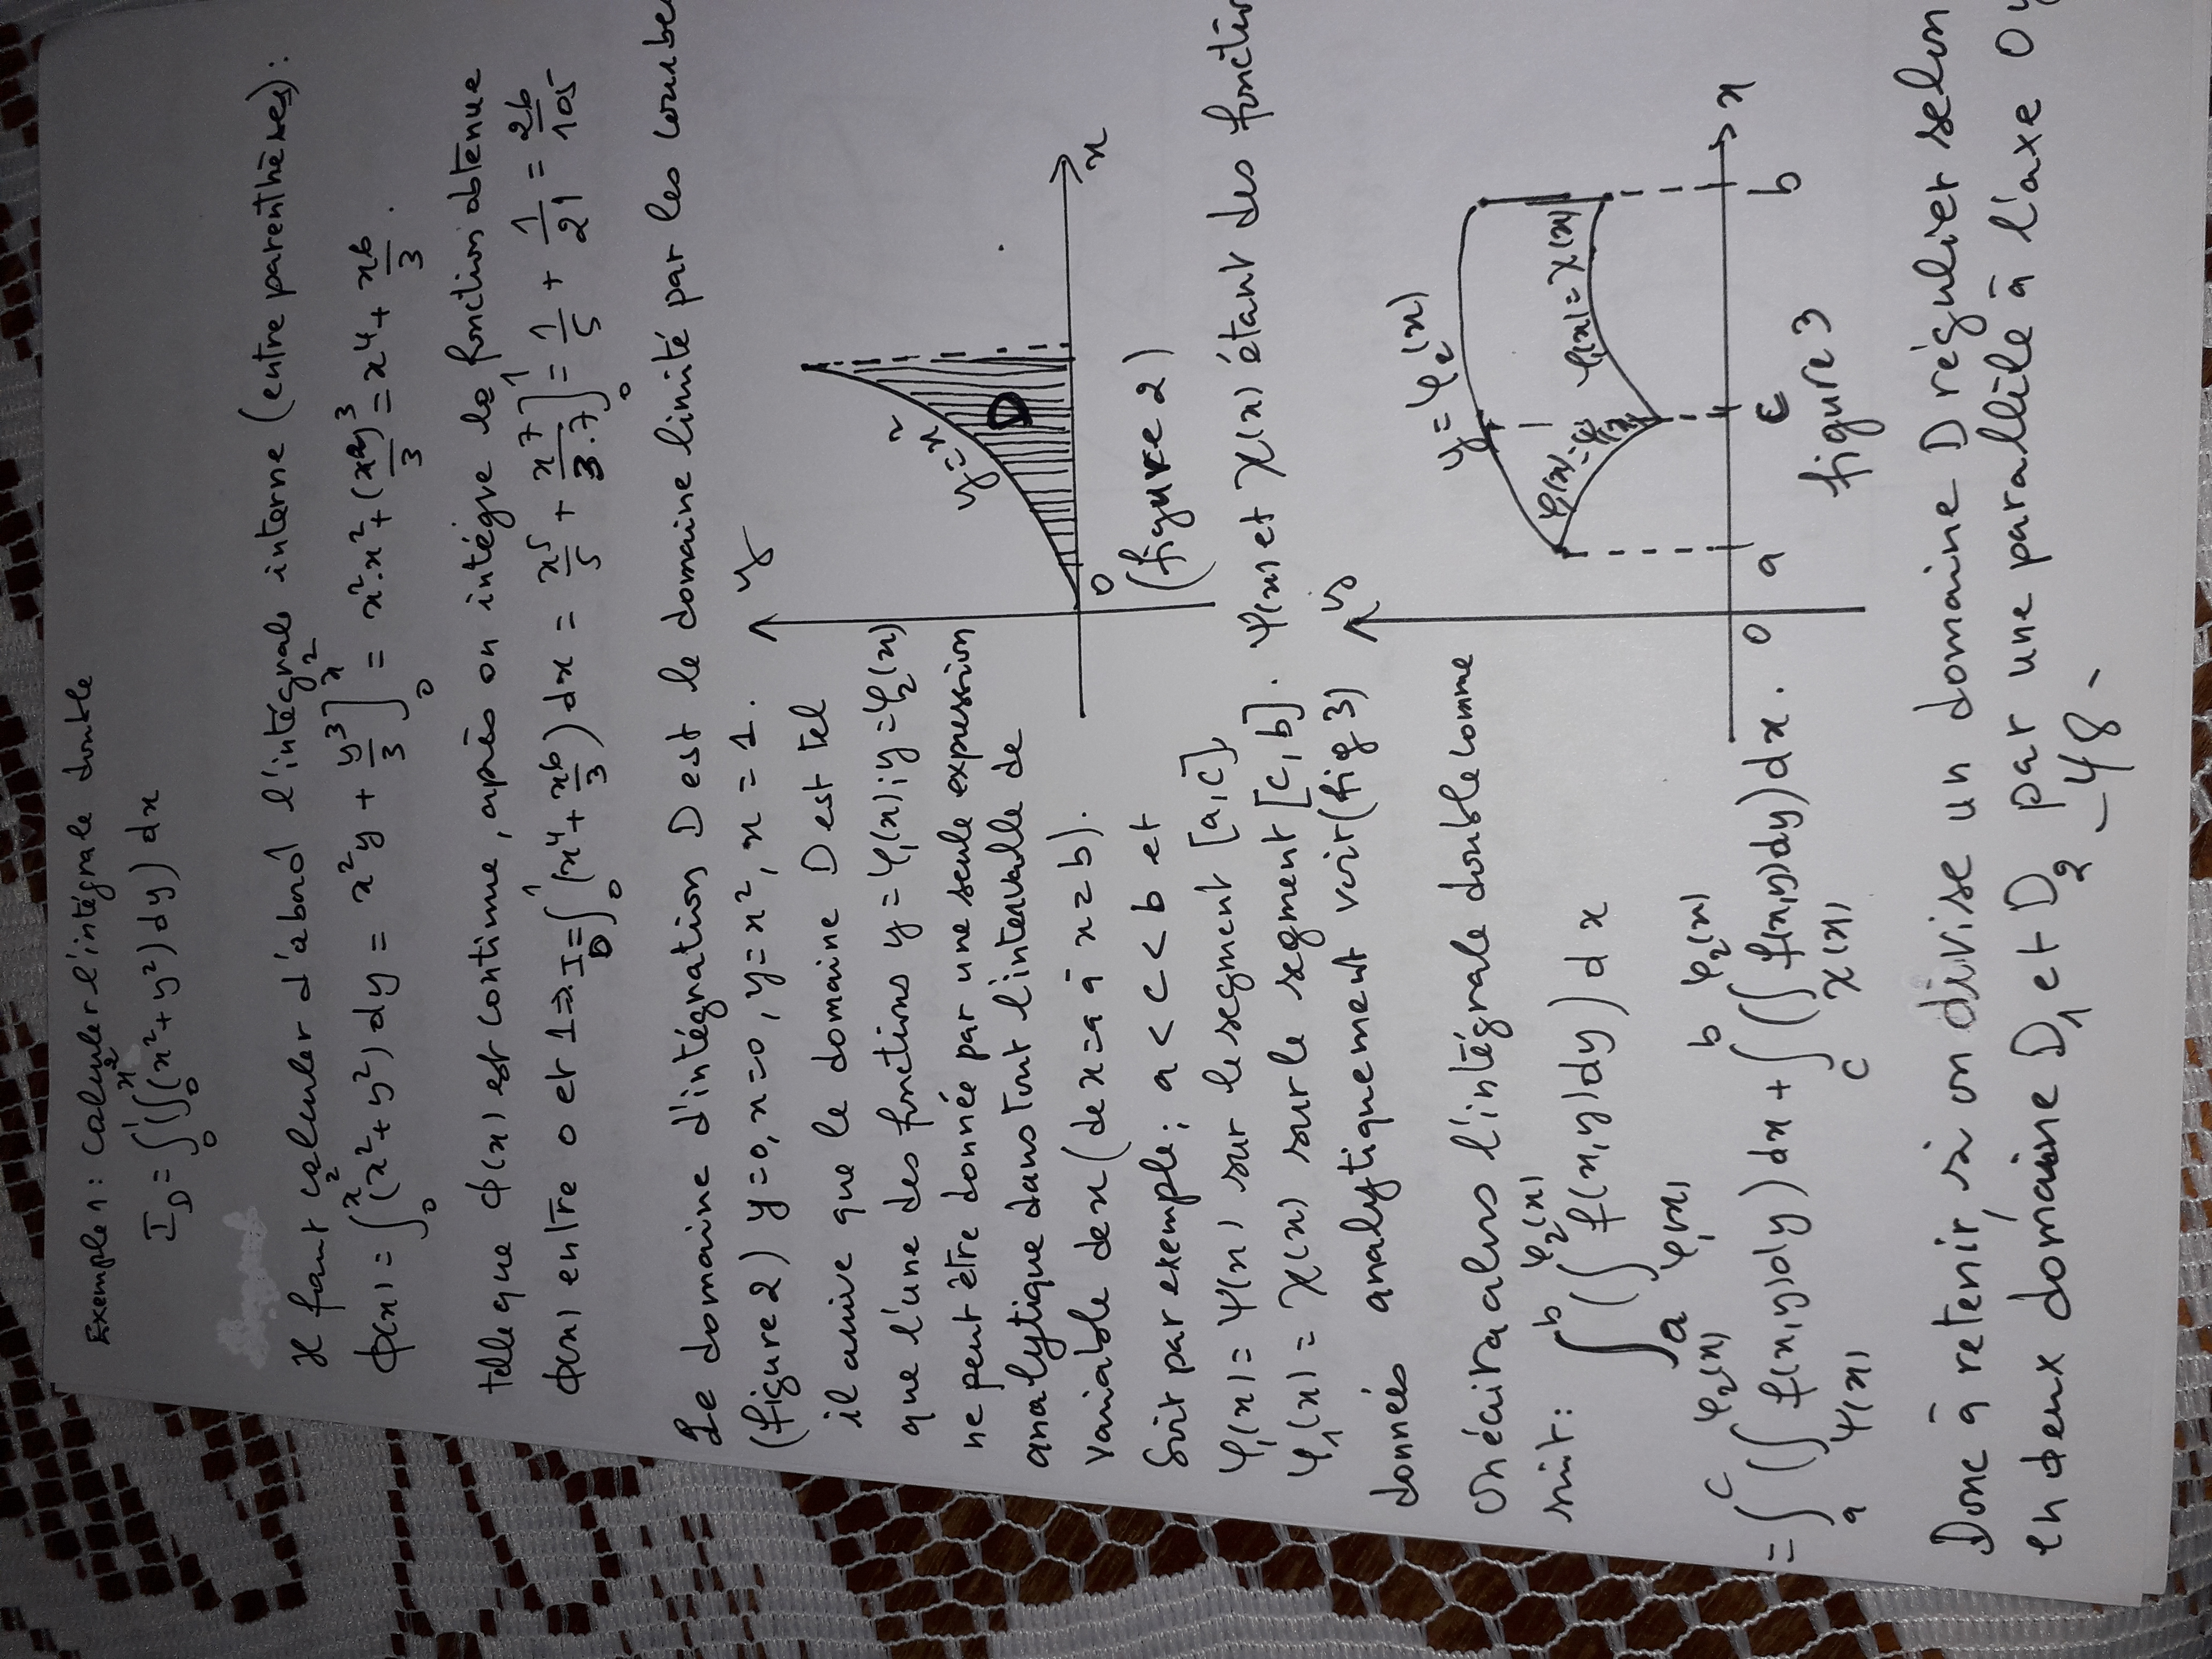 Exemple 1: calculer l'intégrale double
I_D = ∫₀¹ (∫₀^{x²} (x² + y²) dy) dx
Il faut calculer d'abord l'intégrale interne (entre parenthèses):
ϕ(x) = ∫₀^{x²} (x² + y²) dy = x²y + y³/3 ]₀^{x²} = x².x² + (x²)³/3 = x⁴ + x⁶/3 .
telle que ϕ(x) est continue, après on intégre la fonction obtenue
ϕ(x) entre 0 et 1 ⇒ I_D = ∫₀¹ (x⁴ + x⁶/3) dx = x⁵/5 + x⁷/3.7 ]₀¹ = 1/5 + 1/21 = 26/105
Le domaine d'intégration D est le domaine limité par les courbe
(figure 2) y=0, x=0, y=x², x=1.
il arrive que le domaine D est tel
que l'une des fonctions y=φ₁(x); y=φ₂(x)
ne peut être donnée par une seule expression
analytique dans tout l'intervalle de
variable de x (de x=a à x=b).
Soit par exemple; a < c < b et
φ₁(x) = ψ(x) sur le segment [a,c],
φ₁(x) = χ(x) sur le segment [c,b]. ψ(x) et χ(x) étant des fonction
données analytiquement voir (fig 3)
y
y=x²
D
0
x
(figure 2)
On écrira alors l'intégrale double comme
suit: ∫ₐᵇ (∫_{φ₁(x)}^{φ₂(x)} f(x,y) dy) dx
= ∫ₐᶜ (∫_{ψ(x)}^{φ₂(x)} f(x,y) dy) dx + ∫_c^b (∫_{χ(x)}^{φ₂(x)} f(x,y) dy) dx .
y
y=φ₂(x)
φ₁(x)=ψ(x)
φ₁(x)=χ(x)
0 a c b x
figure 3
Donc à retenir, si on divise un domaine D régulier selon
en deux domaine D₁ et D₂ par une parallèle à l'axe Oy
-48-